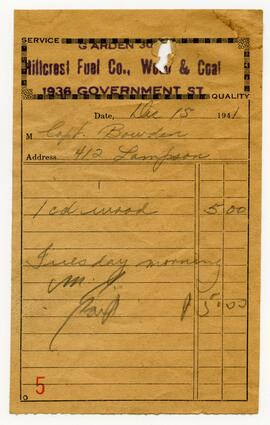 SERVICE
GARDEN 30
Hillcrest Fuel Co., Wood & Coal
1936 GOVERNMENT ST.
QUALITY
Date, Dec 15 1941
M Capt. Bowden
Address 412 Lampson
1 cd wood 5.00
Tuesday morning
Paid $5.00
5